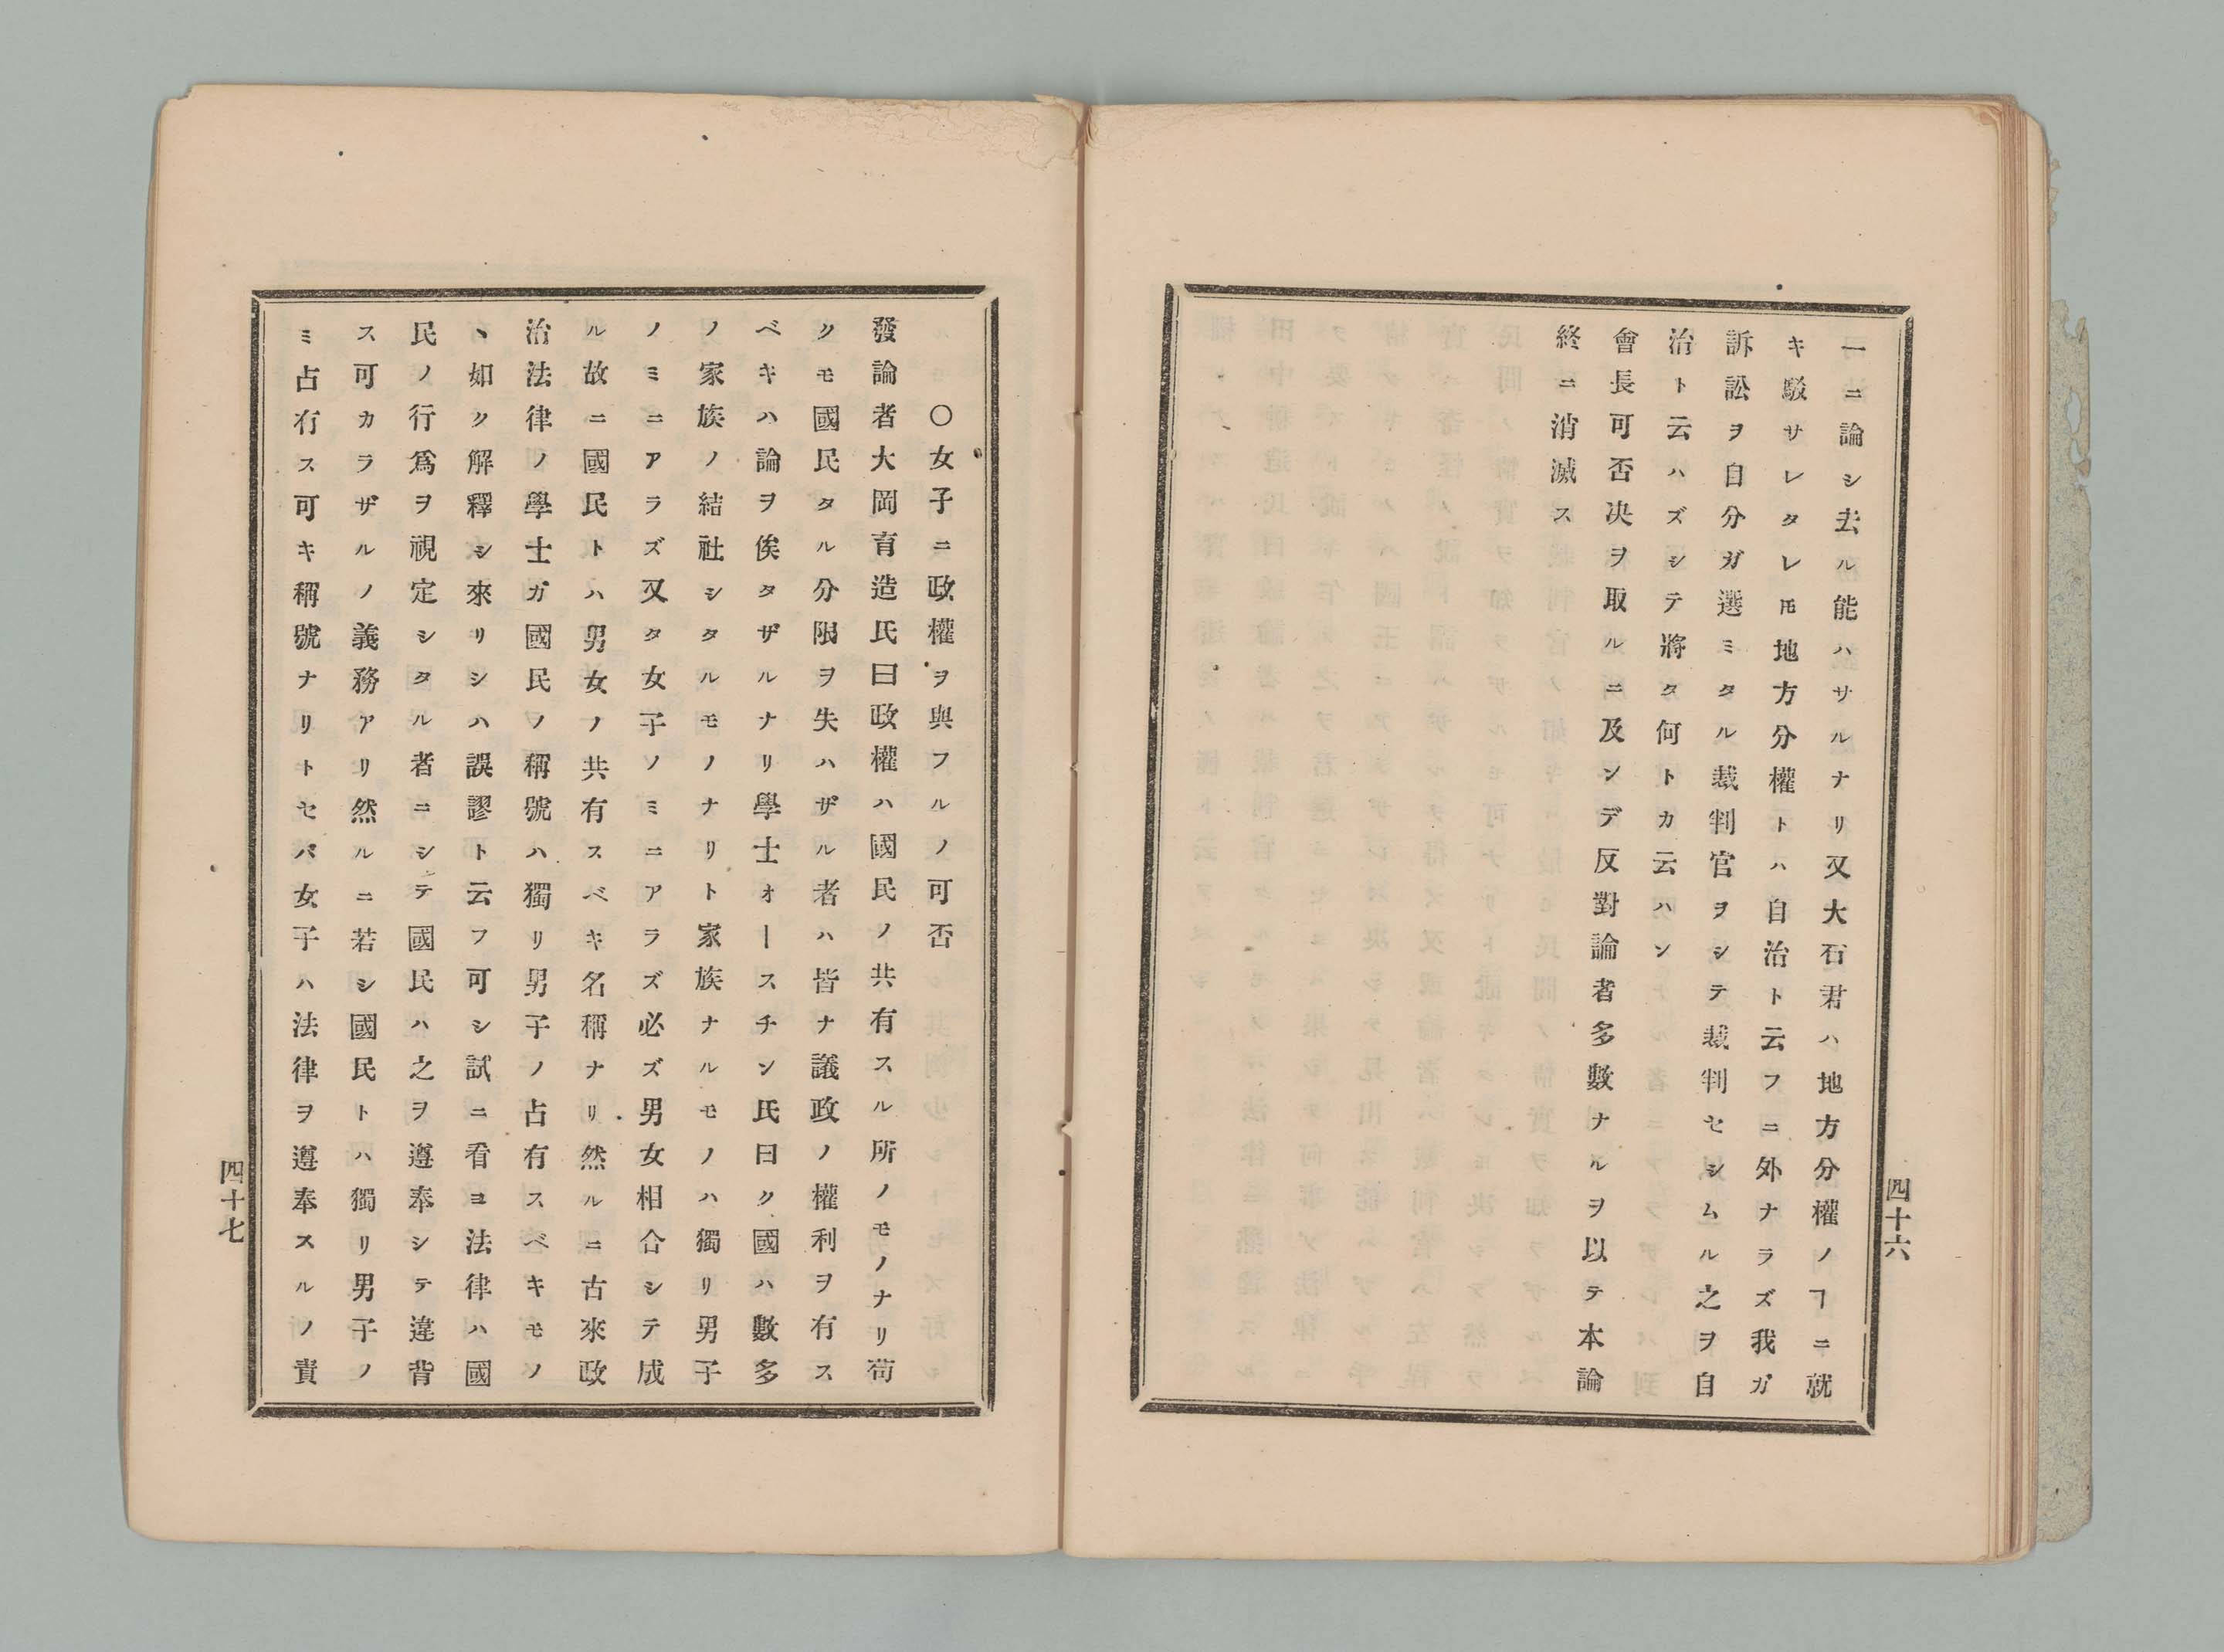 一ニ論シ去ル能ハサルナリ又大石君ハ地方分權ノヿニ就
キ駁サレタレ𪜈地方分權トハ自治ト云フニ外ナラズ我ガ
訴訟ヲ自分ガ選ミタル裁判官ヲシテ裁判セシムル之ヲ自
治ト云ハズシテ將タ何トカ云ハン
會長可否决ヲ取ルニ及ンデ反對論者多數ナルヲ以テ本論
終ニ消滅ス
四十六
〇女子ニ政權ヲ與フルノ可否
發論者大岡育造氏曰政權ハ國民ノ共有スル所ノモノナリ苟
クモ國民タル分限ヲ失ハザル者ハ皆ナ議政ノ權利ヲ有ス
ベキハ論ヲ俟タザルナリ學士オースチン氏曰ク國ハ數多
ノ家族ノ結社シタルモノナリト家族ナルモノハ獨リ男子
ノミニアラズ又タ女子ノミニアラズ必ズ男女相合シテ成
ル故ニ國民トハ男女ノ共有スベキ名稱ナリ然ルニ古來政
治法律ノ學士ガ國民ノ稱號ハ獨リ男子ノ占有スベキモノ
ヽ如ク解釋シ來リシハ誤謬ト云フ可シ試ニ看ヨ法律ハ國
民ノ行爲ヲ視定シタル者ニシテ國民ハ之ヲ遵奉シテ違背
ス可カラザルノ義務アリ然ルニ若シ國民トハ獨リ男子ノ
ミ占有ス可キ稱號ナリトセバ女子ハ法律ヲ遵奉スルノ責
四十七